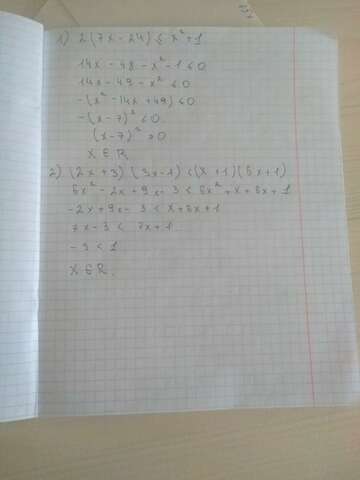 1) 2(7x - 24) ≤ x² + 1
14x - 48 - x² - 1 ≤ 0
14x - 49 - x² ≤ 0
-(x² - 14x + 49) ≤ 0
-(x - 7)² ≤ 0
(x - 7)² ≥ 0
x ∈ R
2) (2x + 3)(3x - 1) < (x + 1)(6x + 1)
6x² - 2x + 9x - 3 < 6x² + x + 6x + 1
-2x + 9x - 3 < x + 6x + 1
7x - 3 < 7x + 1
-3 < 1
x ∈ R.